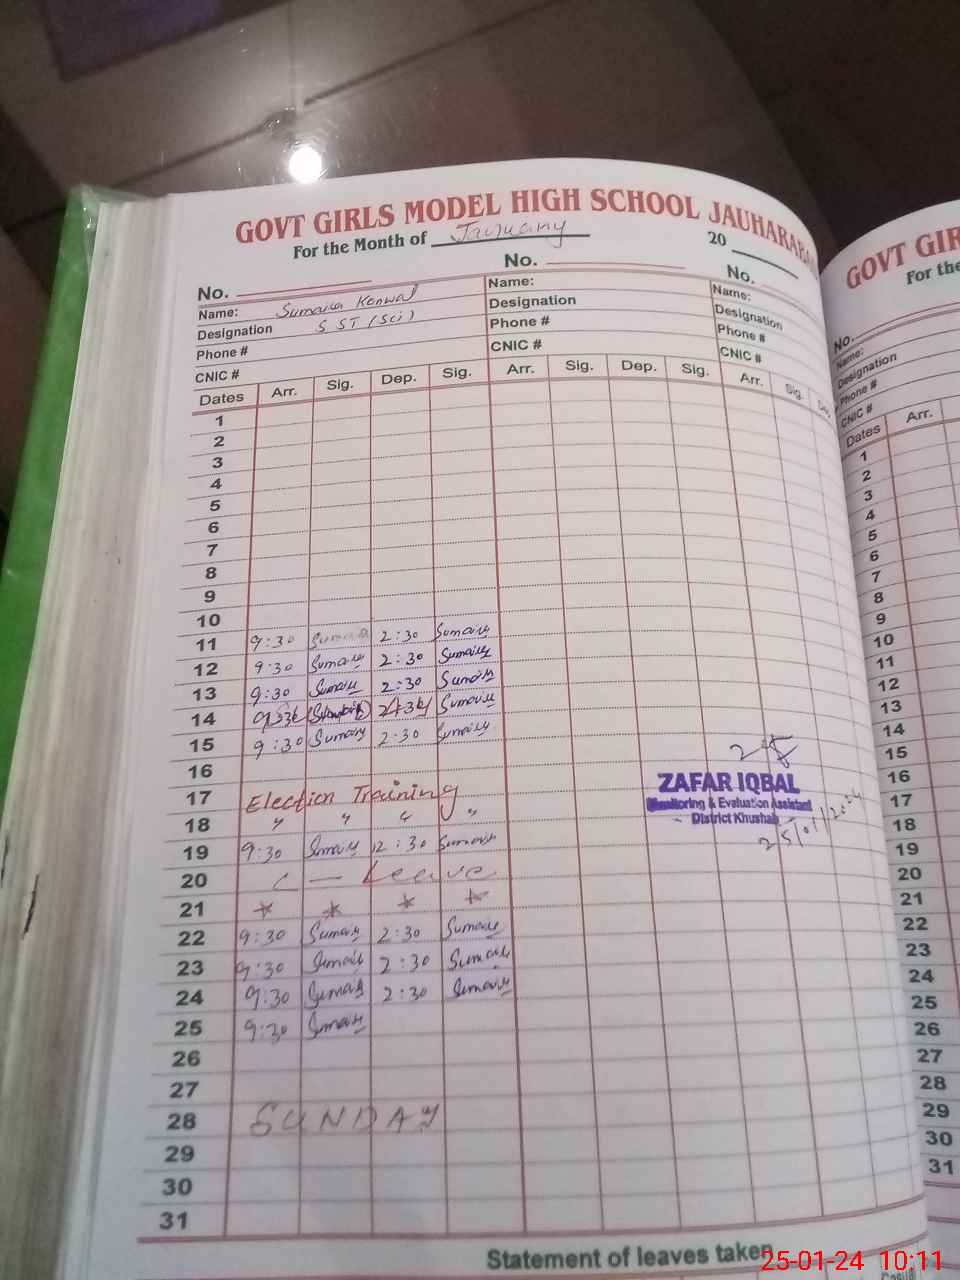 GOVT GIRLS MODEL HIGH SCHOOL JAUHARABA
For the Month of January 20
No. No. No.
Name: Sumaira Kanwal Name: Name:
Designation S ST (Sci) Designation Designation
Phone # Phone # Phone #
CNIC # CNIC # CNIC #
Dates Arr. Sig. Dep. Sig. Arr. Sig. Dep. Sig. Arr. Sig.
1
2
3
4
5
6
7
8
9
10
11 9:30 2:30
12 9:30 2:30
13 9:30 2:30
14
15 9:30 2:30
16
17 Election Training
18 " " " "
19 9:30 2:30
20 C — Leave
21 * * * *
22 9:30 2:30
23 9:30 2:30
24 9:30 2:30
25 9:30
26
27
28 SUNDAY
29
30
31
ZAFAR IQBAL
Monitoring & Evaluation Assistant
District Khushab
25/01/2024
Statement of leaves taken
GOVT GIR
For the
No.
Name:
Designation
Phone #
CNIC #
Dates Arr.
1
2
3
4
5
6
7
8
9
10
11
12
13
14
15
16
17
18
19
20
21
22
23
24
25
26
27
28
29
30
31
25-01-24 10:11